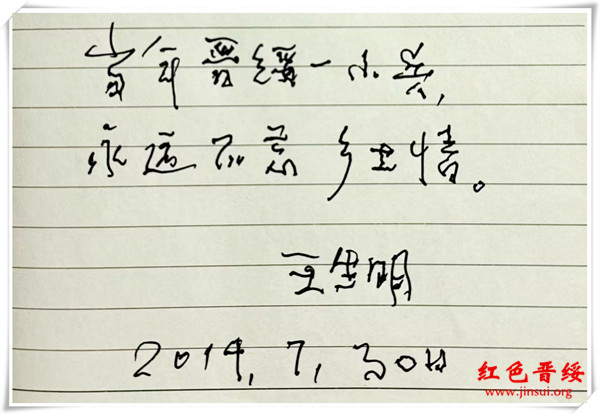 当年晋绥一小兵,
永远不忘乡土情。
王 明
2014,7,30日
红色晋绥
www.jinsui.org